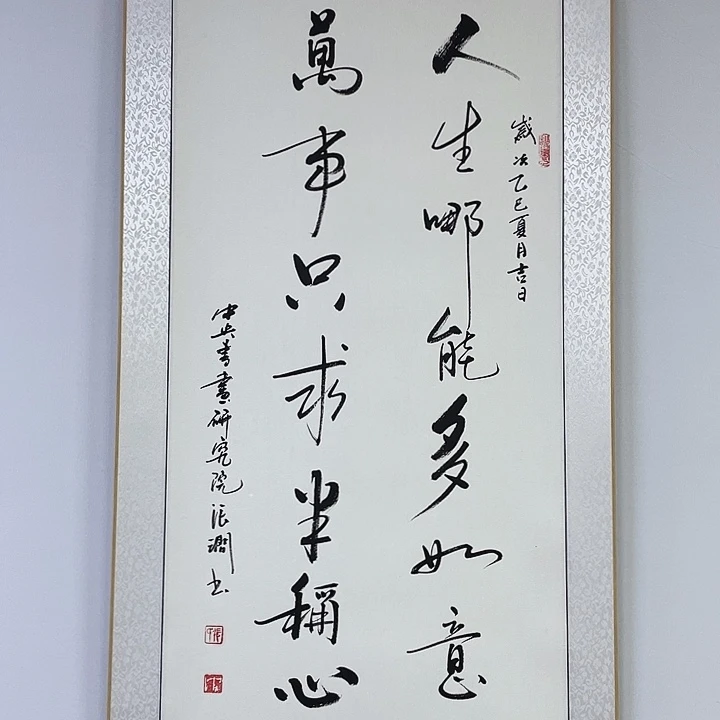 歲次乙巳夏月吉日
人生哪能多如意
萬事只求半稱心
中央書畫研究院張澗書